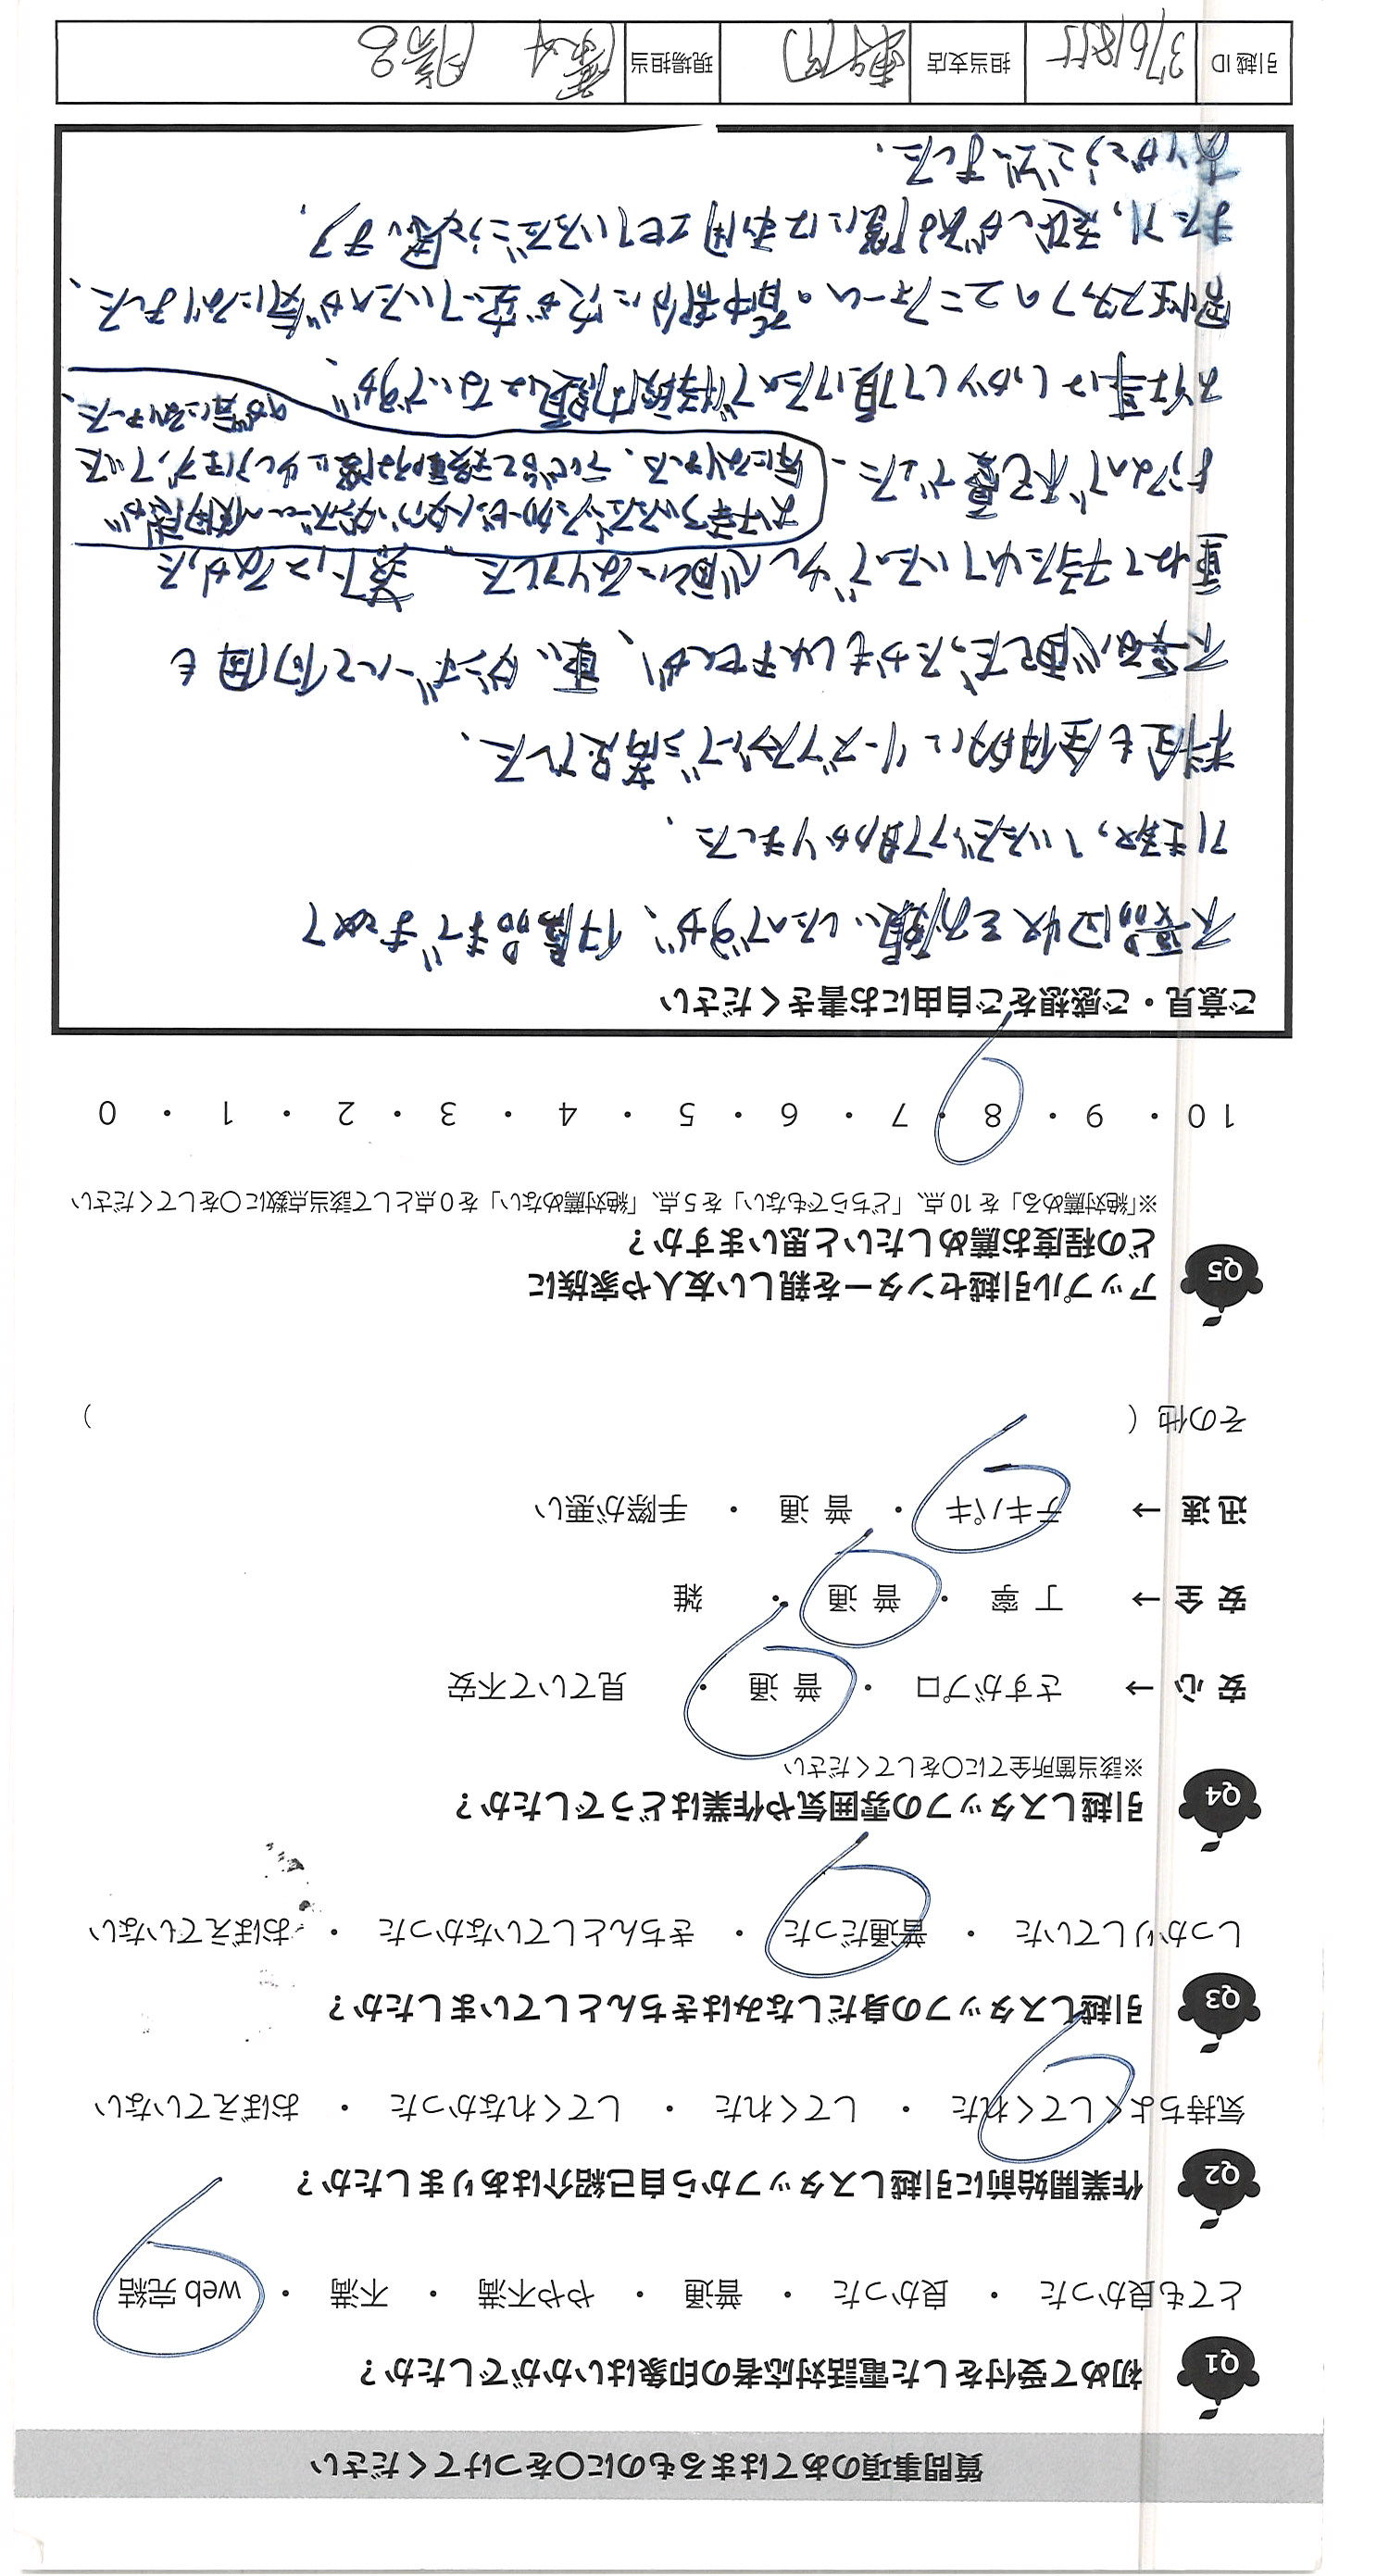 質問事項のあてはまるものに〇をつけてください
Q1 初めて受付をした電話対応者の印象はいかがでしたか？
とても良かった ・ 良かった ・ 普通 ・ やや不満 ・ 不満 ・ web 完結
Q2 作業開始前に引越しスタッフから自己紹介はありましたか？
気持ちよくしてくれた ・ してくれた ・ してくれなかった ・ おぼえていない
Q3 引越しスタッフの身だしなみはきちんとしていましたか？
しっかりしていた ・ 普通だった ・ きちんとしていなかった ・ おぼえていない
Q4 引越しスタッフの雰囲気や作業はどうでしたか？
※該当箇所全てに〇をしてください
安 心 → さすがプロ ・ 普 通 ・ 見ていて不安
安 全 → 丁 寧 ・ 普 通 ・ 雑
迅 速 → テキパキ ・ 普 通 ・ 手際が悪い
その他（ ）
Q5 アップル引越センターを親しい友人や家族に
どの程度お薦めしたいと思いますか？
※「絶対薦める」を 10 点、「どちらでもない」を 5 点、「絶対薦めない」を 0 点として該当点数に〇をしてください
10 ・ 9 ・ 8 ・ 7 ・ 6 ・ 5 ・ 4 ・ 3 ・ 2 ・ 1 ・ 0
ご意見・ご感想をご自由にお書きください
不要品回収をお願いしたのですが、付属品まですべて
引き取っていただけて助かりました、
料金も全体的にリーズナブルで満足でした、
不要な心配だったかもしれませんが、重いダンボールを何個も
重ねて持たれていたので少し心配になりました 落下はなかった
ようなので不思議でした、
気になりました、テレビ
のが気になりました、
お仕事はしっかりして頂けたので問題はないですが、
男性スタッフのユニフォームの背中部分に穴が空いていたのが気になりました、
また引っ越しがある際には利用させていただこうと思います、
ありがとうございました、
引越 ID 3761855 担当支店 現場担当